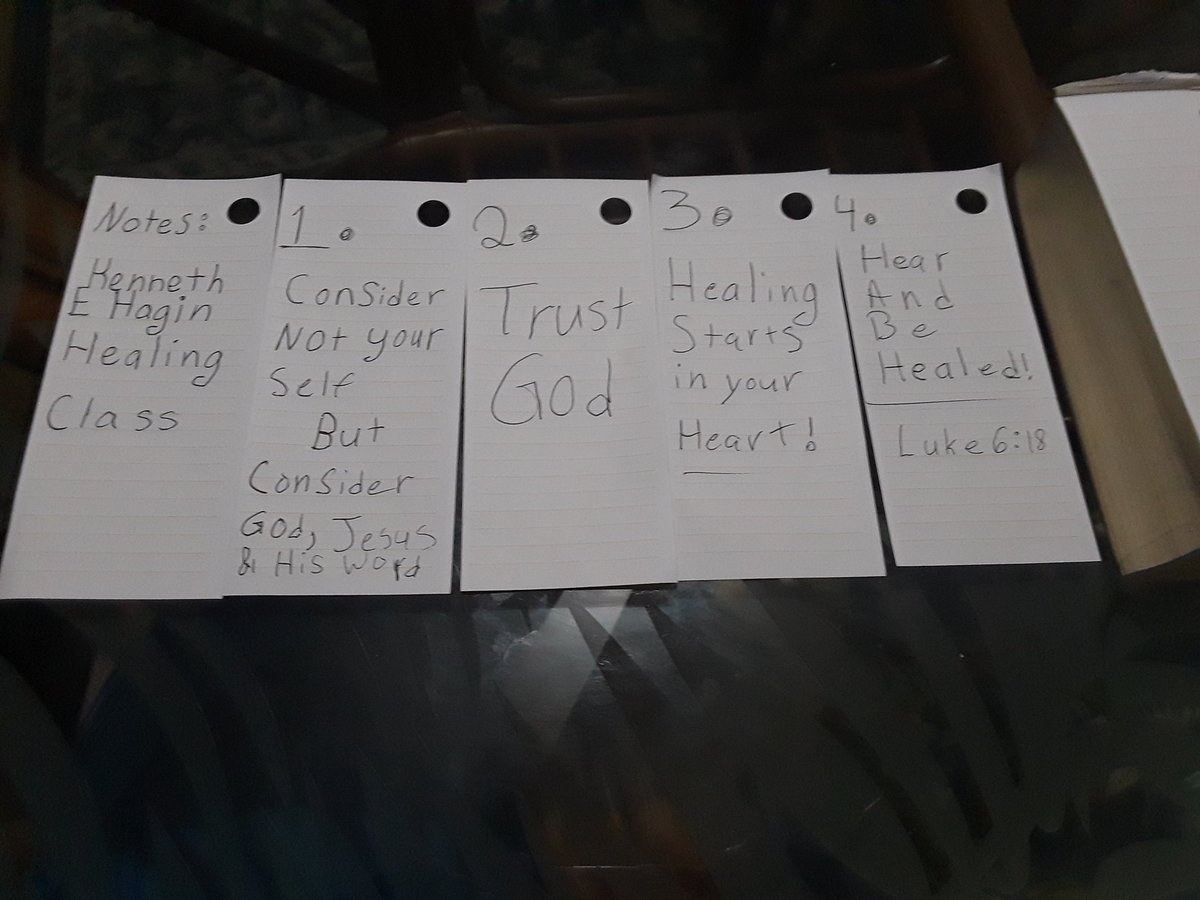 Notes:
Kenneth
E Hagin
Healing
Class
1.
Consider
Not your
Self
But
Consider
God, Jesus
& His word
2.
Trust
God
3.
Healing
Starts
in your
Heart!
4.
Hear
And
Be
Healed!
Luke 6:18